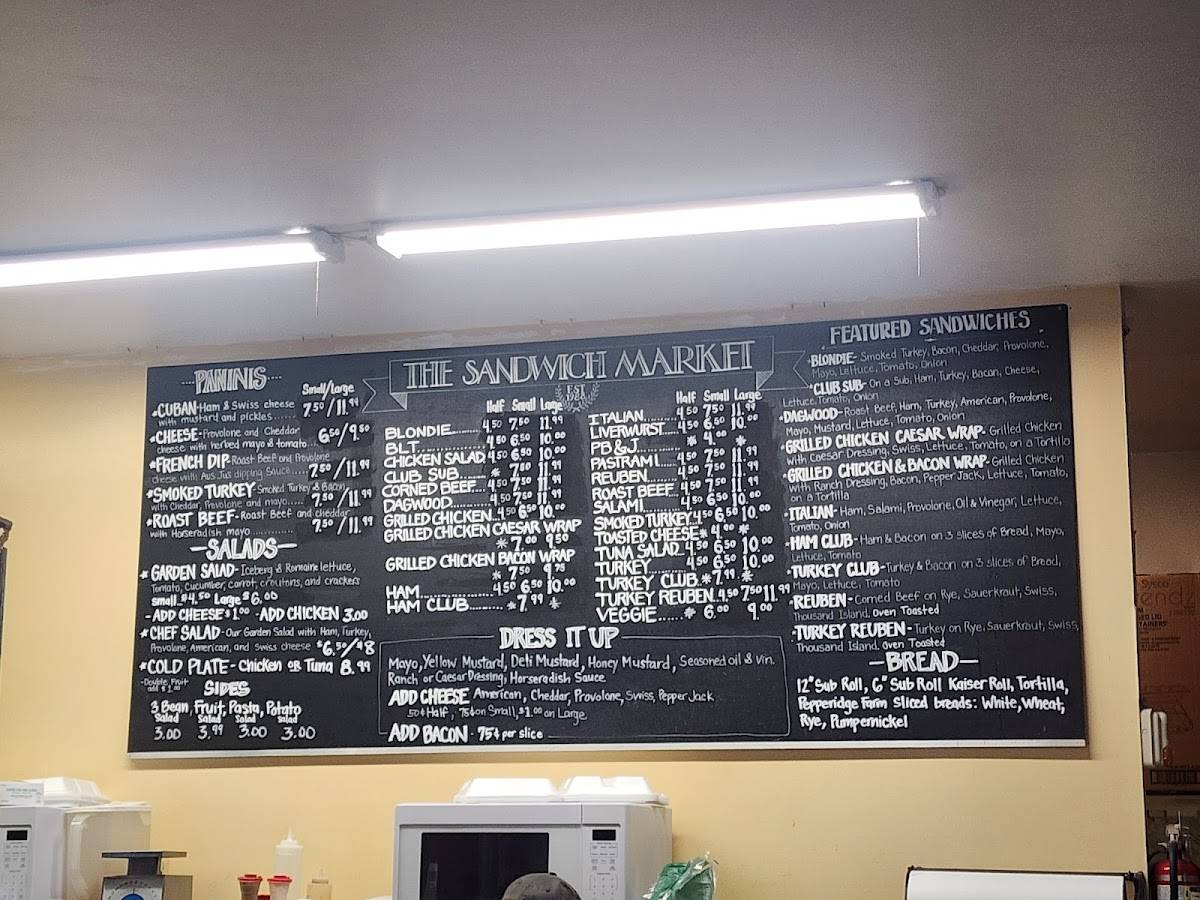 PANINIS
Small/Large
CUBAN-Ham & Swiss cheese
with mustard and pickles...... 7.50/11.99
CHEESE-Provolone and Cheddar
cheese with herbed mayo & tomato... 6.50/9.50
FRENCH DIP-Roast Beef and Provolone
cheese with Aus Jus dipping Sauce.... 7.50/11.99
SMOKED TURKEY-Smoked Turkey & Bacon
with Cheddar, Provolone and mayo..... 7.50/11.99
ROAST BEEF-Roast Beef and cheddar
with Horseradish mayo........... 7.50/11.99
-SALADS-
GARDEN SALAD-Iceberg & Romaine lettuce,
Tomato, Cucumber, carrot, croutons, and crackers
small $4.50 Large $6.00
-ADD CHEESE $1.00 -ADD CHICKEN 3.00
CHEF SALAD-Our Garden Salad with Ham, Turkey,
Provolone, American, and Swiss cheese $6.50/$8
COLD PLATE-Chicken OR Tuna 8.99
-Double Fruit
add $1.00
SIDES
3 Bean, Fruit, Pasta, Potato
Salad Salad Salad Salad
3.00 3.99 3.00 3.00
THE SANDWICH MARKET
EST
Half Small Large
BLONDIE......... 4.50 7.50 11.99
BLT............ 4.50 6.50 10.00
CHICKEN SALAD 4.50 6.50 10.00
CLUB SUB.... * 7.50 11.99
CORNED BEEF... 4.50 7.50 11.99
DAGWOOD....... 4.50 7.50 11.99
GRILLED CHICKEN..4.50 6.50 10.00
GRILLED CHICKEN CAESAR WRAP
* 7.00 9.50
GRILLED CHICKEN BACON WRAP
* 7.50 9.75
HAM............4.50 6.50 10.00
HAM CLUB.......* 7.99 *
Half Small Large
ITALIAN....... 4.50 7.50 11.99
LIVERWURST.... 4.50 6.50 10.00
PB & J........ * 4.00 *
PASTRAMI..... 4.50 7.50 11.99
REUBEN....... 4.50 7.50 11.99
ROAST BEEF.. 4.50 7.50 11.99
SALAMI....... 4.50 6.50 10.00
SMOKED TURKEY.4.50 6.50 10.00
TOASTED CHEESE * 4.00 *
TUNA SALAD..4.50 6.50 10.00
TURKEY.......4.50 6.50 10.00
TURKEY CLUB.*7.99.*
TURKEY REUBEN.4.50 7.50 11.99
VEGGIE......* 6.00 9.00
DRESS IT UP
Mayo, Yellow Mustard, Deli Mustard, Honey Mustard, Seasoned oil & Vin.
Ranch or Caesar Dressing, Horseradish Sauce
ADD CHEESE American, Cheddar, Provolone, Swiss, Pepper Jack
.50¢ Half, .75¢ on Small, $1.00 on Large
ADD BACON - 75¢ per slice
FEATURED SANDWICHES
BLONDIE-Smoked Turkey, Bacon, Cheddar, Provolone,
Mayo, Lettuce, Tomato, Onion
CLUB SUB-On a Sub, Ham, Turkey, Bacon, Cheese,
Lettuce, Tomato, Onion
DAGWOOD-Roast Beef, Ham, Turkey, American, Provolone,
Mayo, Mustard, Lettuce, Tomato, Onion
GRILLED CHICKEN CAESAR WRAP-Grilled Chicken
with Caesar Dressing, Swiss, Lettuce, Tomato, on a Tortilla
GRILLED CHICKEN & BACON WRAP-Grilled Chicken
with Ranch Dressing, Bacon, Pepper Jack, Lettuce, Tomato,
on a Tortilla
ITALIAN-Ham, Salami, Provolone, Oil & Vinegar, Lettuce,
Tomato, Onion
HAM CLUB-Ham & Bacon on 3 slices of Bread, Mayo,
Lettuce, Tomato
TURKEY CLUB-Turkey & Bacon on 3 slices of Bread,
Mayo, Lettuce, Tomato
REUBEN-Corned Beef on Rye, Sauerkraut, Swiss,
Thousand Island. Oven Toasted
TURKEY REUBEN-Turkey on Rye, Sauerkraut, Swiss,
Thousand Island. Oven Toasted
-BREAD-
12" Sub Roll, 6" Sub Roll Kaiser Roll, Tortilla,
Pepperidge Farm Sliced breads: White, Wheat,
Rye, Pumpernickel